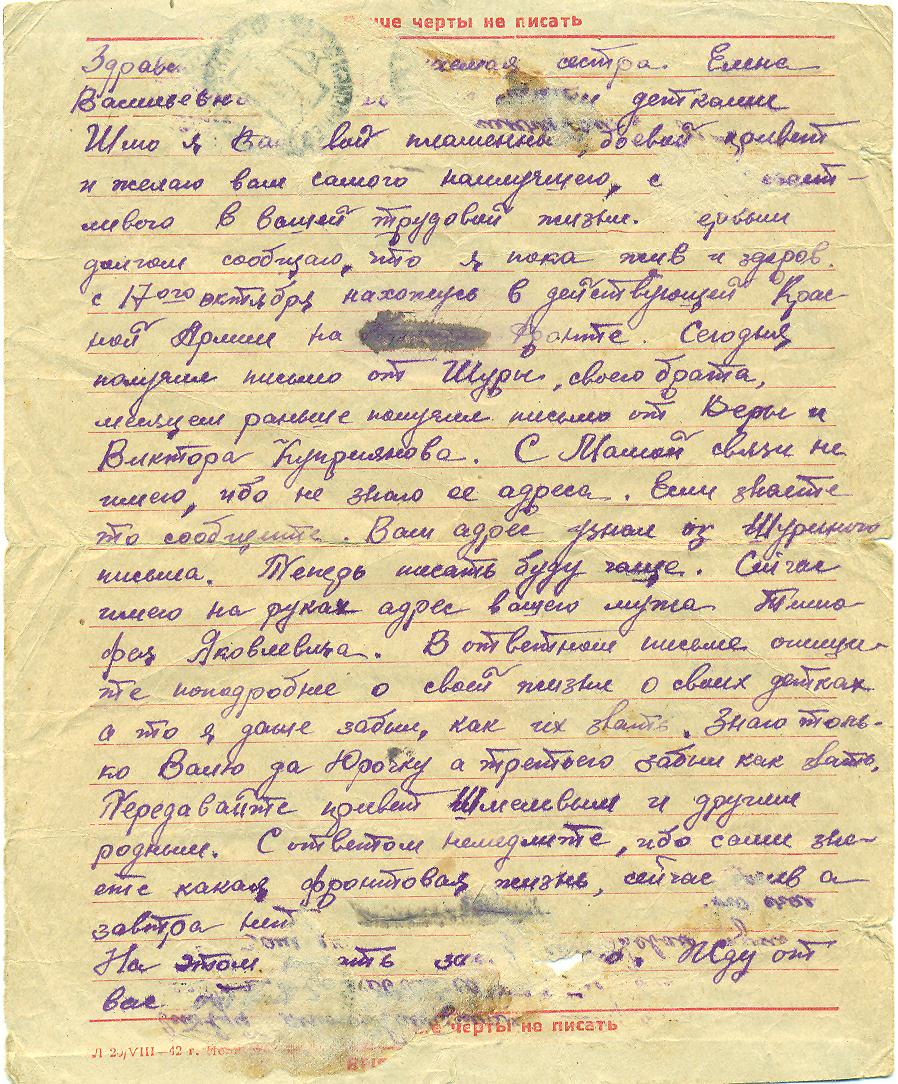 ше черты не писать
сестра Елена
Васильевна детками
Шлю я Вам свой пламенный, боевой привет
и желаю вам самого наилучшего, с
ливого в вашей трудовой жизни. ервым
долгом сообщаю, что я пока жив и здоров.
с 17ого октября нахожусь в действующей Крас-
ной Армии на фронте. Сегодня
получил письмо от Шуры, своего брата,
месяцем раньше получил письмо от Веры и
Виктора Куприянова. С Машей связи не
имею, ибо не знаю ее адреса. Если знаете
то сообщите. Ваш адрес узнал из Шуриного
письма. Теперь писать буду чаще. Сейчас
имею на руках адрес вашего мужа Тимо
фея Яковлевича. В ответном письме опиши-
те поподробнее о своей жизни о своих детках
а то я даже забыл, как их звать. Знаю толь-
ко Валю да Юрочку а третьего забыл как звать.
Передавайте привет Шмелевым и другим
родным. С ответом немедлите, ибо сами зна-
ете какая фронтовая жизнь, сейчас жив а
завтра нет
На этом Жду от
вас
е черты не писать
VIII-42 г.